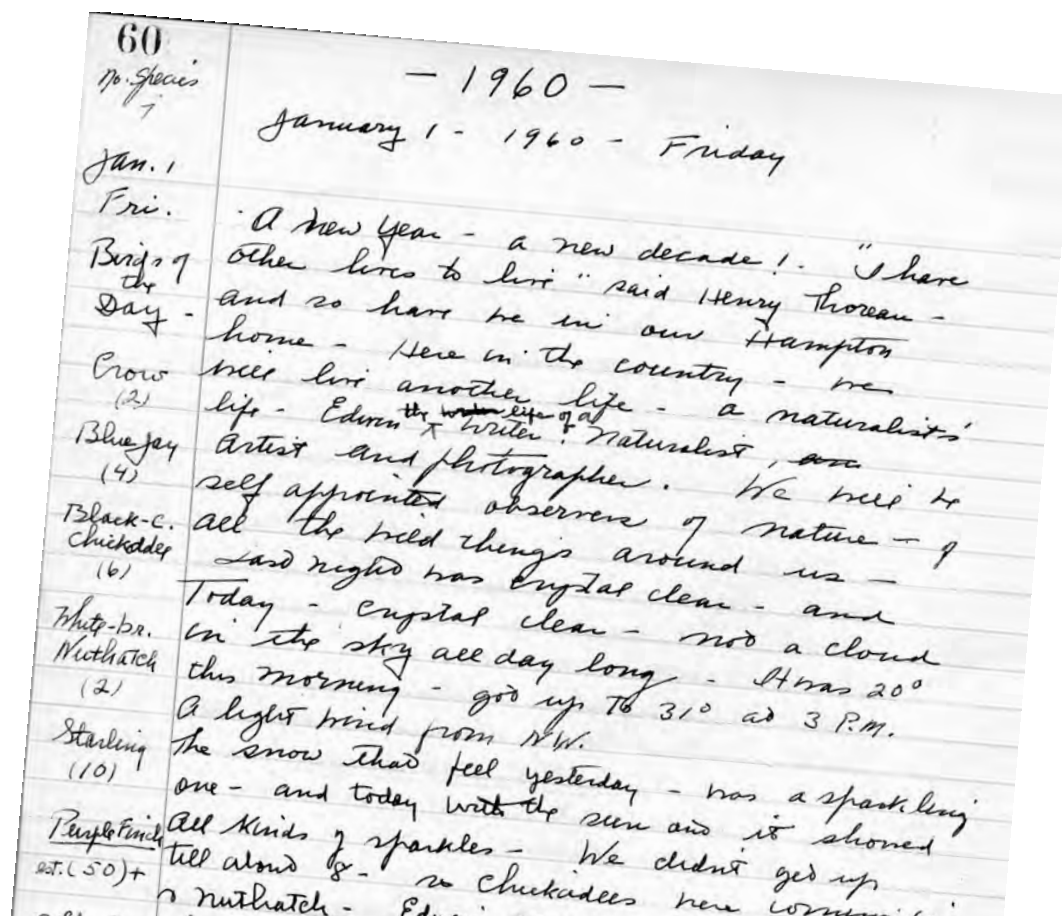 60
No. Species
7
- 1960 -
January 1 - 1960 - Friday
Jan. 1
Fri.
Birds of
the
Day -
Crow
(2)
Blue Jay
(4)
Black-c.
Chickadee
(6)
White-br.
Nuthatch
(2)
Starling
(10)
Purple Finch
est. (50)+
A new year - a new decade! "I have
other lives to live" said Henry Thoreau -
and so have we in our Hampton
home - Here in the country - we
will live another life - a naturalists'
life - Edwin the life of a writer, naturalist,
artist and photographer. We will be
self appointed observers of nature - of
all the wild things around us -
Last night was crystal clear - and
Today - crystal clear - not a cloud
in the sky all day long - It was 20°
this morning - got up to 31° at 3 P.M.
A light wind from NW.
The snow that feel yesterday - was a sparkling
one - and today with the sun out it showed
all kinds of sparkles - We didn't get up
till about 8 - so Chickadees were
Nuthatch -